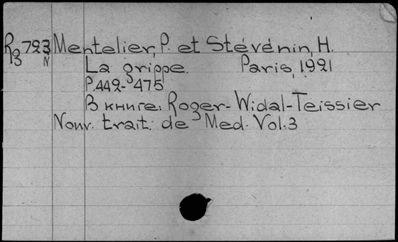 R 723 Mentelier, P. et Stévénin, H.
B N
La grippe. Paris, 1921
P. 442-475
В книге: Roger-Widal-Teissier
Nouv. trait. de Med. Vol. 3